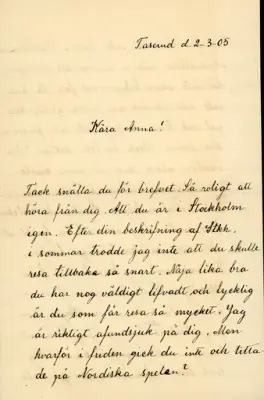 Taserud d. 2-3-05
Kära Anna!
Tack snälla du för brefvet. Så roligt att
höra från dig. Att du är i Stockholm
igen. Efter din beskrifning af Sthh.
i sommar trodde jag inte att du skulle
resa tillbaka så snart. Nåja lika bra
du har nog väldigt lifvadt och lycklig
är du som får resa så mycket. Jag
är riktigt afundsjuk på dig. Men
hvarför i friden gick du inte och titta-
de på Nordiska spelen?